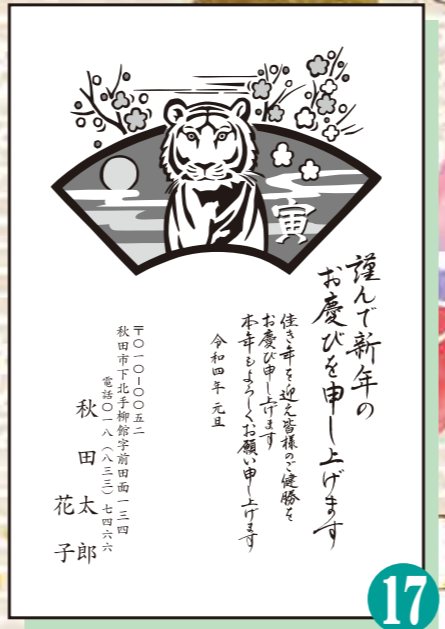 寅
謹んで新年の
お慶びを申し上げます
佳き年を迎え皆様のご健勝を
お慶び申し上げます
本年もよろしくお願い申し上げます
令和四年 元旦
〒〇一〇-〇〇五二
秋田市下北手柳館字前田面一三四
電話〇一八(八三三)七四六六
秋田太郎
花子
17